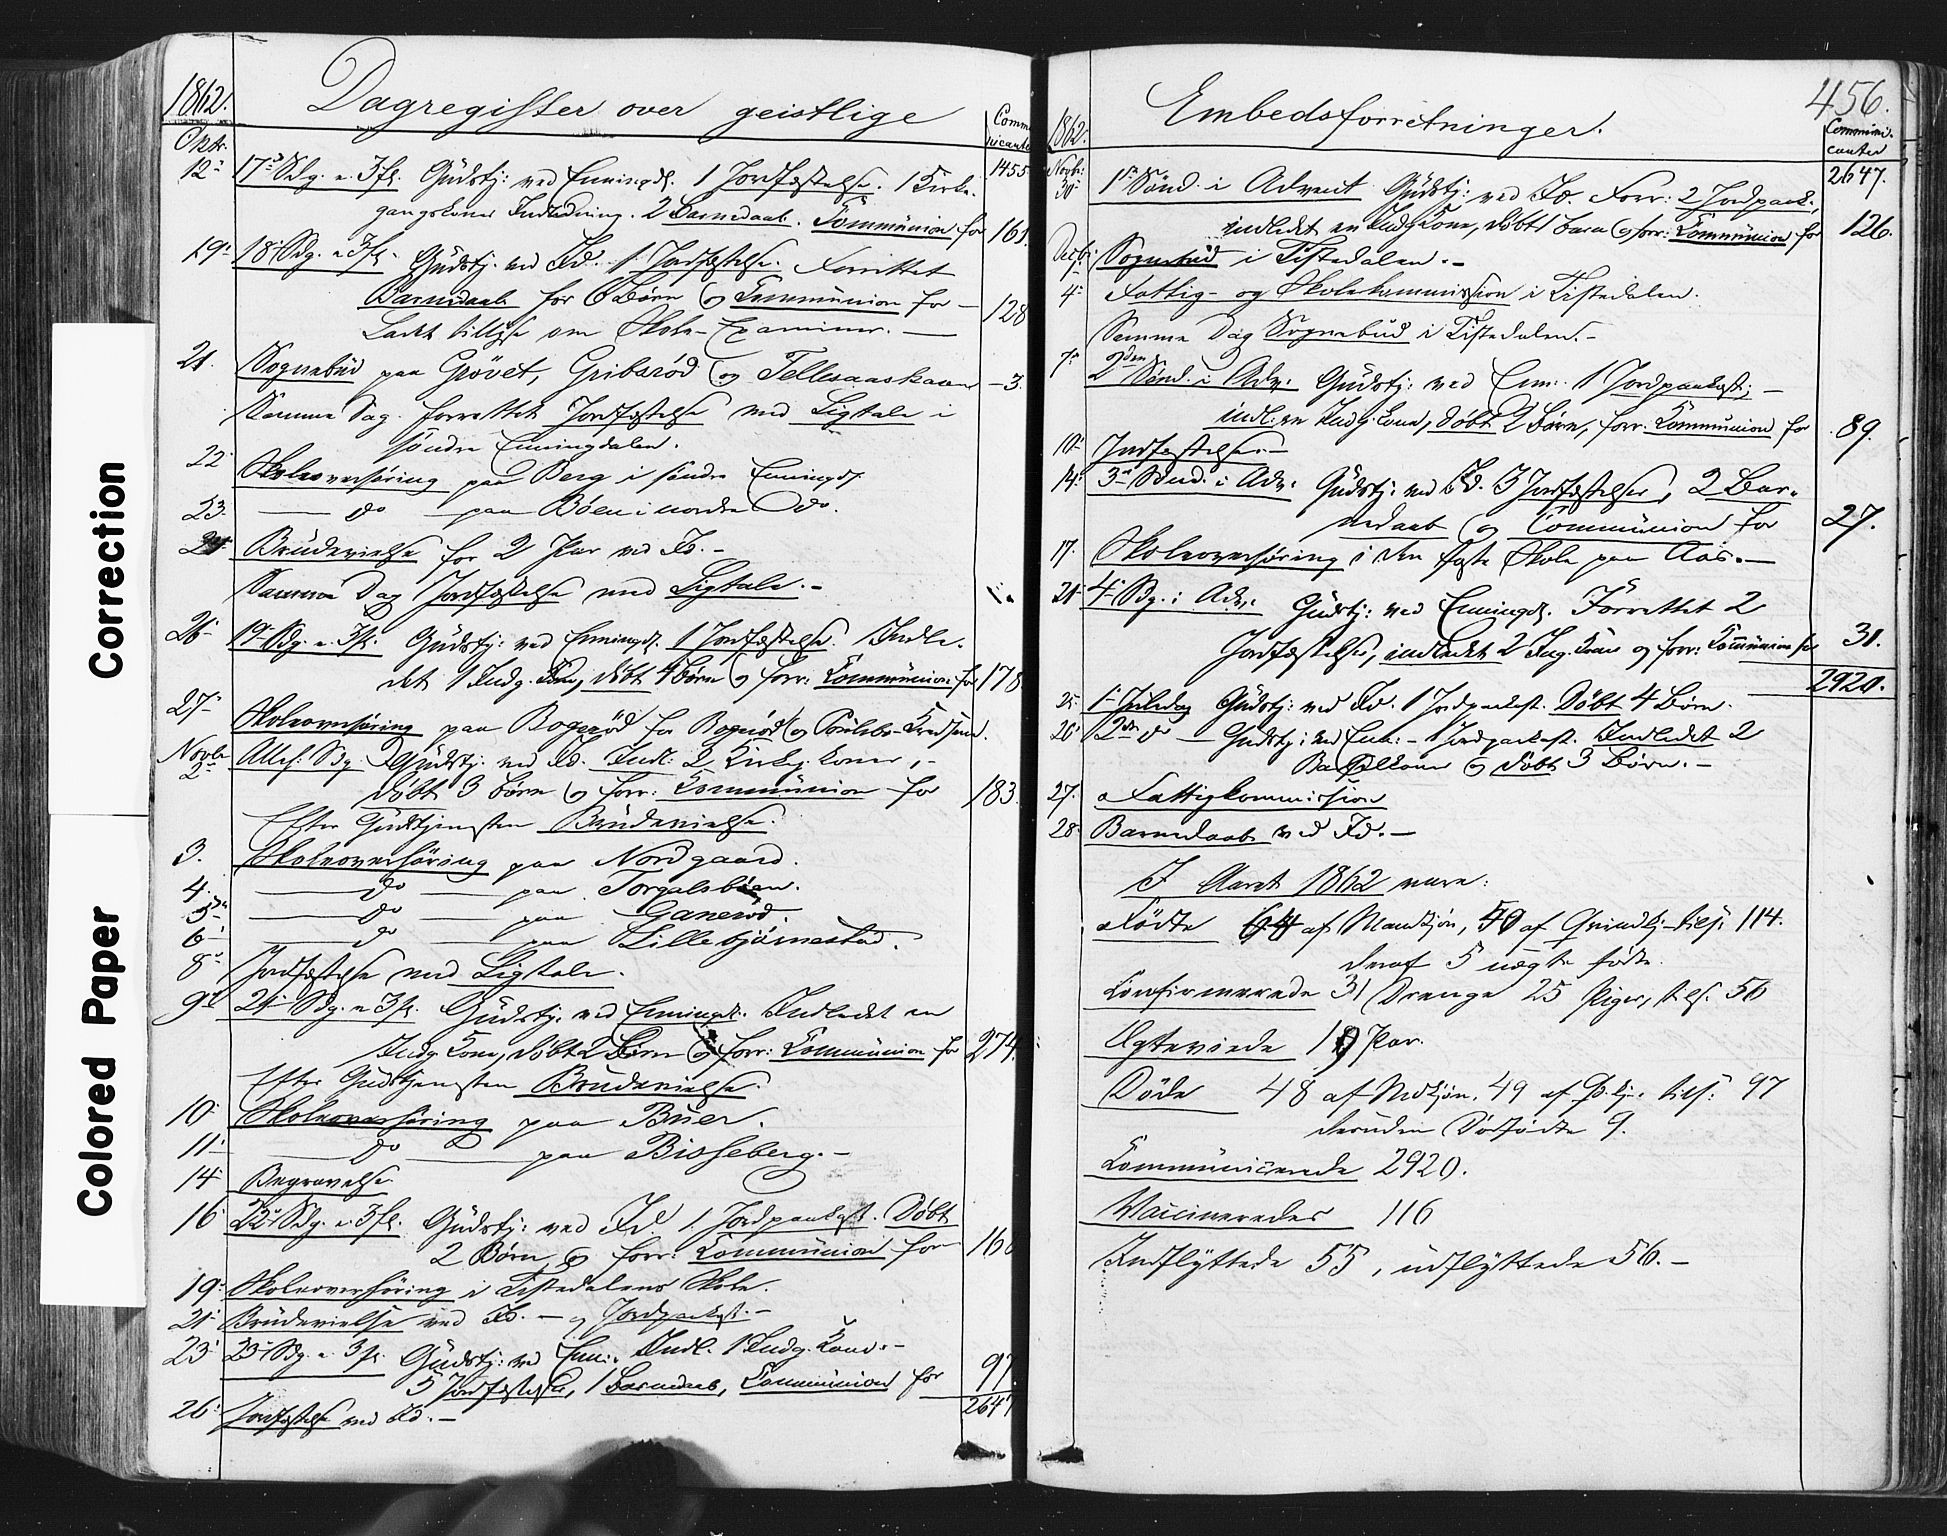 Correction
Colored Paper
1862. Dagregister over geistlige
Oktr. Communicanter
12. 17. Sdg. e. Trf. Gudstj: ved Enningd. 1 Jordfæstelse. 1 Kirke- 1455
gangskones Indledning. 2 Barnedaab. Communion for 161.
19. 18. Sdg. e. Trf. Gudstj. ved Id. 1 Jordfæstelse. Forrettet
Barnedaab for 6 Børn og Communion for – 128
Lyst tillyse om Skole-Examiner. —
21. Sognebud paa Grövet, Gribsröd og – 3.
Samme Dag forrettet Jordfæstelse med Ligtale i
søndre Enningdalen.
22 Skoleoverhøring paa Berg i søndre Enningd.
23. — do — paa Böen i nordre do.
24. Brudevielse for 2 Par ved Id. –
Samme Dag Jordfæstelse med Ligtale. –
26. 19. Sdg. e. Trf. Gudstj: ved Enningd. 1 Jordfæstelse. Indle-
det 1 Indg. Kone, døbt 4 Børn og forr: Communion for 178
27. Skoleoverhøring paa Bogeröd for Bogeröd og
Novbr. 2. Alleh. Sdg. Gudstj. ved Id. Indl: 2 Kirkg. koner, –
døbt 3 Børn og forr: Communion for 183.
Efter Gudstjenesten Brudevielse.
3. Skoleoverhøring paa Nordgaard.
4. — do — paa Torgalsböen.
5. — do — paa Ganeröd.
6. — do — paa Lillebjörnestad.
8. Jordfæstelse med Ligtale.
9. 21. Sdg. e. Trf. Gudstj. ved Enningd. Indledet en
Indg. Kone, døbt 2 Børn og forr: Communion for 274.
Efter Gudstjenesten Brudevielse.
10. Skoleoverhøring paa Buer.
11. — do — paa Bisseberg. –
14. Begravelse
16. 22. Sdg. e. Trf. Gudstj: ved Id. 1 Jordpaakast. Døbt
2 Børn og forr: Communion for 160
19. Skoleoverhøring i Tistedalens Skole.
21. Brudevielse ved Id. – og Jordpaakast. –
23. 23. Sdg. e. Trf. Gudstj: ved Enn. Indl. 1 Indg. Kone. –
5 Jordfæstelser, 1 Barnedaab, Communion for 97
26. Jordfæstelse ved Id. – 2647
1862. Embedsforretninger. 456.
Communicanter
Novbr. 30. 1. Sönd. i Advent Gudstj: ved Id. Forr: 2 Jordpaak., 2647.
indledet en Indg. Kone, døbt 1 Barn og forr: Communion for 126.
Decbr. 1. Sognebud i Tistedalen. –
4. Fattig- og Skolekommission i Tistedalen.
Samme Dag Sognebud i Tistedalen. –
7. 2den Sönd. i Adv: Gudstj: ved Enn. 1 Jordpaakast; –
indl: en Indg. Kone, døbt 2 Børn, forr. Communion for 89.
10. Jordfæstelse. –
14. 3. Sönd. i Adv: Gudstj: ved Id. 3 Jordfæstelser, 2 Bar-
nedaab og Communion for 27.
17. Skoleoverhøring i den faste Skole paa Aas. —
21. 4. Sdg. i Adv: Gudstj: ved Enningd. Forrettet 2
Jordfæstelser, indledet 2 Ing. Koner og forr: Communion for 31.
2920.
25. 1. Juledag Gudstj: ved Id. 1 Jordpaakast. Døbt 4 Børn.
26. 2den do – Gudstj: ved Enn: – 1 Jordpaakast. Indledet 2
Barselkoner og døbt 3 Børn. –
27. Fattigkommission
28. Barnedaab ved Id. –
I Aaret 1862 vare:
Födte 64 af Mandkjön, 50 af Qvindkj. tils. 114.
deraf 5 uægte födte.
Confirmerede 31 Drenge 25 Piger, tils. 56
Ægteviede 19 Par.
Döde 48 af Mdkjön, 49 af Qv.kj. tils: 97
desuden Dödfödte 9.
Communicerede 2920.
Vaccineredes 116
Indflyttede 55, udflyttede 56. –